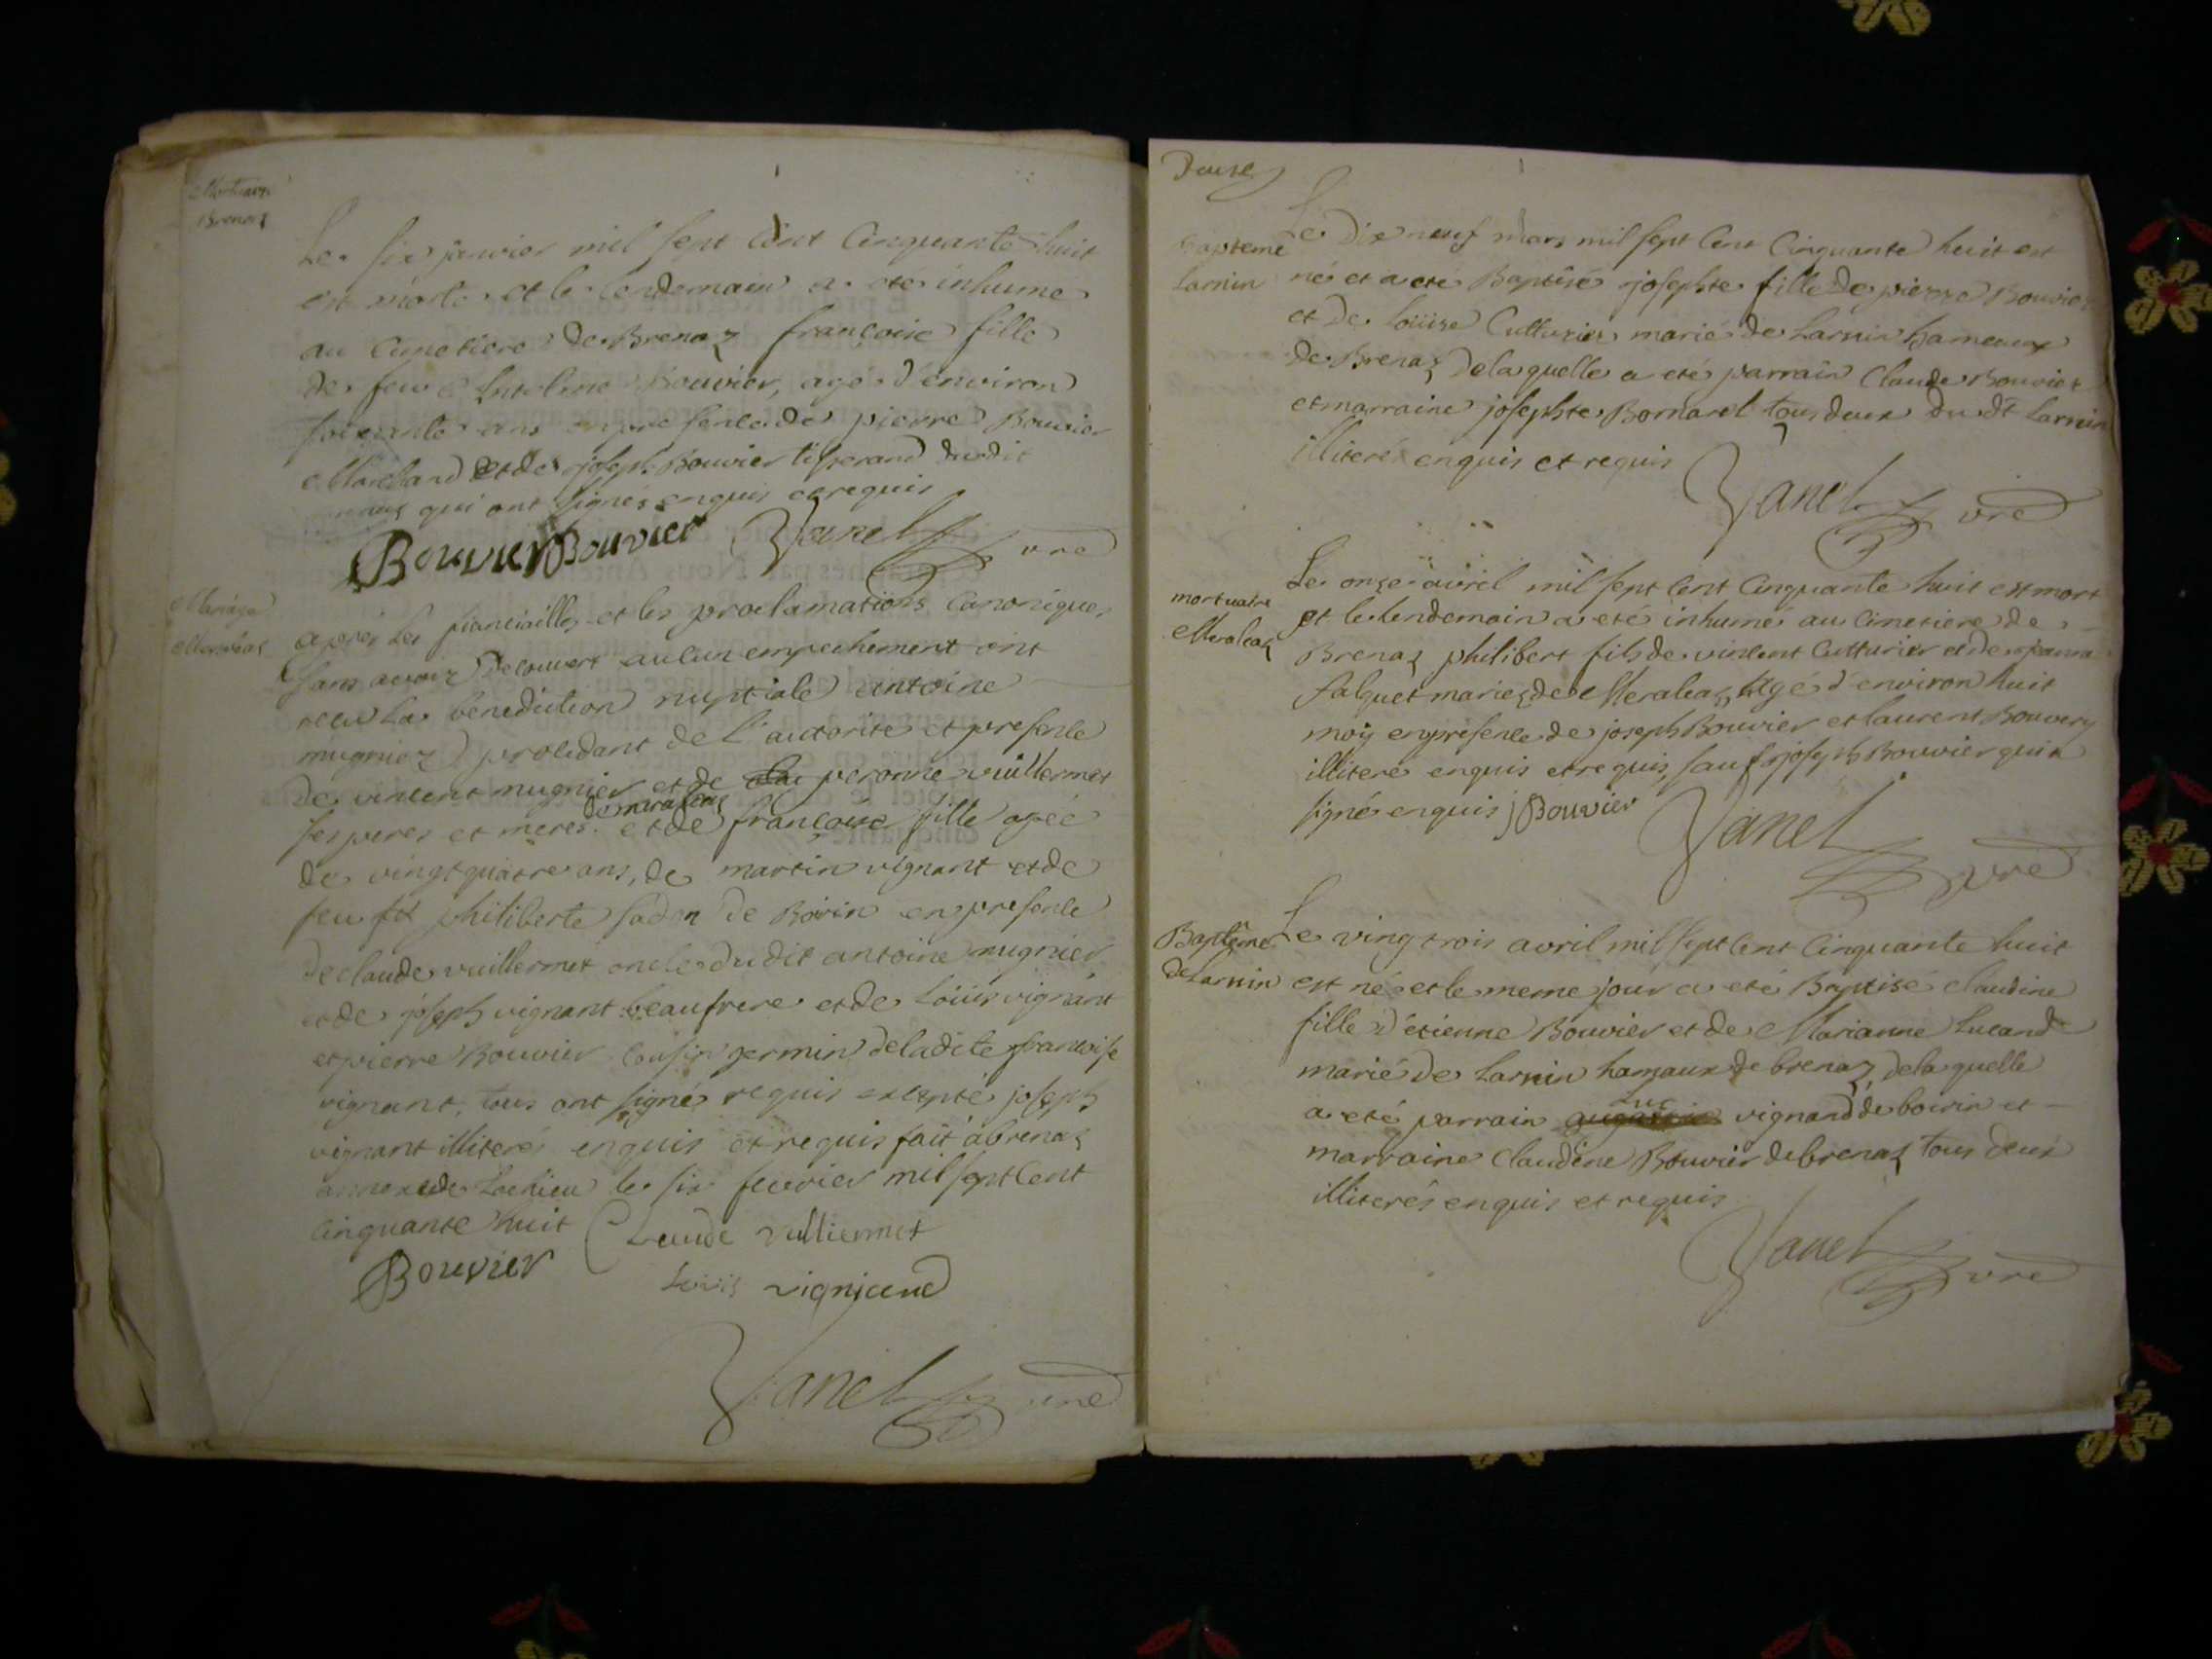 Mortuaire
Brenaz
Le six janvier mil sept cent cinquante huit
est morte et le lendemain a eté inhumé
au cimetiere de Brenaz françoise fille
de feu Anthelme Bouvier, agé d'environ
soixante ans en presence de pierre Bouvier
Marchand et de joseph Bouvier tisserand dudit
qui ont signés enquis et requis
Bouvier Bouvier Janel vre
Mariage
Meraleaz
après les fianciailles et les proclamations canoniques
sans avoir decouvert aucun empechement ont
recu la benediction nuptiale antoine
mugnier procedant de l'autorité et presence
de vincent mugnier et de peronne vuillermet
ses peres et meres de meraleaz et de françoise fille agée
de vingt quatre ans, de martin vignant et de
feu philiberte sadon de Boirin en presence
de claude vuillermet oncle dudit antoine mugnier
et de joseph vignant beaufrere et de Loüis vignant
et pierre Bouvier cousin germin de ladite francoise
vignant, tous ont signé requis excepté joseph
vignant illiteré enquis et requis fait a brenaz
annexe de Lochieu le six fevrier mil sept cent
cinquante huit Claude vulliermet
Bouvier
Louis vigniand
Janel vre
Deuse
Bapteme
Larnin
Le Dix neuf mars mil sept cent cinquante huit est
né et a eté Baptisé josephte fille de pierre Bouvier
et de Loüise Cutturier marié de Larnin hameaux
de Brenaz de la quelle a eté parrain Claude Bouvier
et marraine josephte Bornarel tous deux du dt Larnin
illiterés enquis et requis
Janel vre
mortuaire
Meraleaz
Le onze avril mil sept cent cinquante huit est mort
et le lendemain a eté inhumé au cimetiere de
Brenaz philibert fils de vincent Cutturier et de
falquet mariez de Meraleaz agé d'environ huit
moy en presence de joseph Bouvier et laurent Bouvery
illiteré enquis et requis, sauf joseph Bouvier qui a
signé enquis j Bouvier
Janel vre
Baptême
de Larnin
Le vingt trois avril mil sept cent cinquante huit
est né et le meme jour a eté Baptisé claudine
fille d'etienne Bouvier et de Marianne Lucand
marié de Larnin hamaux de brenaz, de la quelle
a eté parrain Luc vignand de boirin et
marraine Claudine Bouvier de brenaz tous deux
illiterés enquis et requis
Janel vre